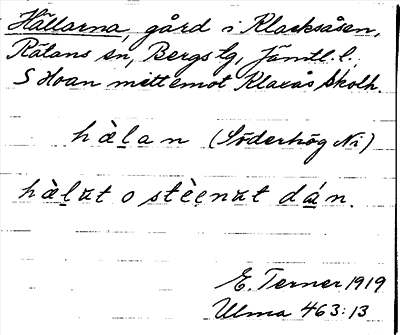 Hällarna, gård i Klacksåsen,
Rätans sn, Bergs tg, Jämtl. l.
S Hoan mittemot Klaxås skolh.
hàl̲an (Söderhög Ni)
hàl̲ut o stèenut dán.
E. Terner 1919
Ulma 463:13